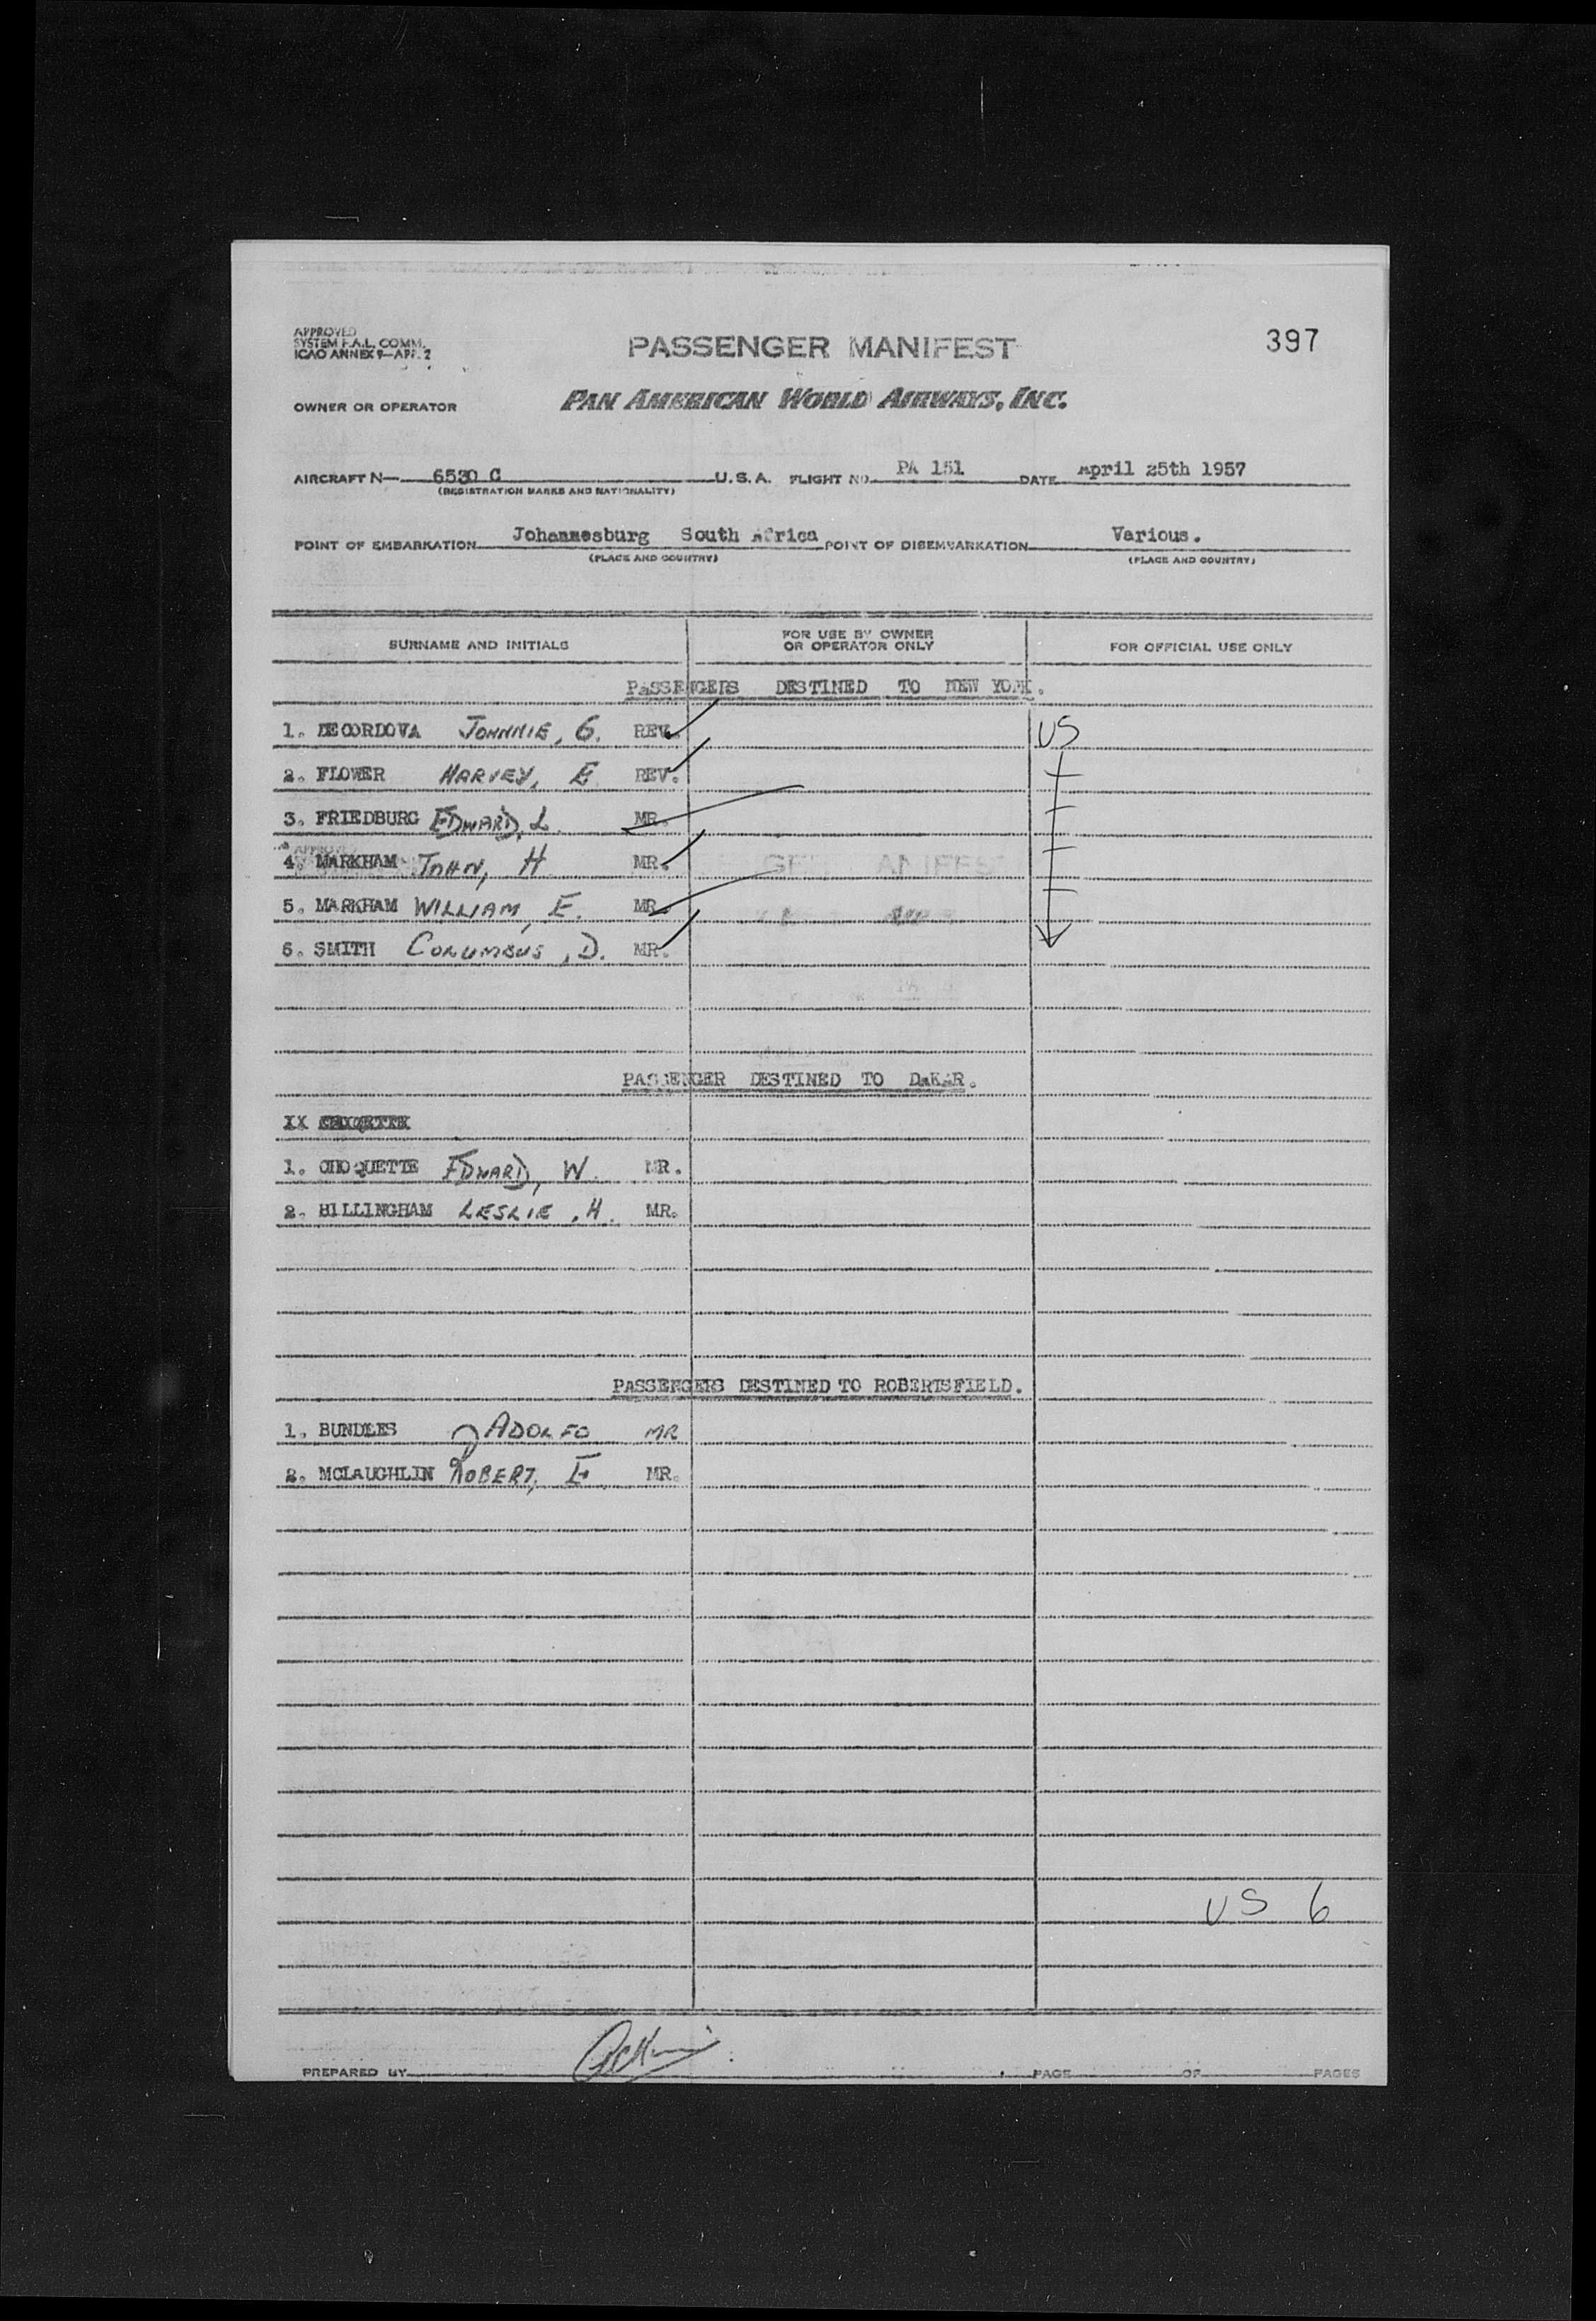 APPROVED
SYSTEM F.A.L. COMM.
ICAO ANNEX 9—APP. 2
PASSENGER MANIFEST
397
OWNER OR OPERATOR PAN AMERICAN WORLD AIRWAYS, INC.
AIRCRAFT N— 6530 C U.S.A. FLIGHT NO. PA 151 DATE April 25th 1957
(REGISTRATION MARKS AND NATIONALITY)
POINT OF EMBARKATION Johannesburg South Africa POINT OF DISEMBARKATION Various.
(PLACE AND COUNTRY) (PLACE AND COUNTRY)
SURNAME AND INITIALS FOR USE BY OWNER OR OPERATOR ONLY FOR OFFICIAL USE ONLY
PASSENGERS DESTINED TO NEW YORK.
1. DECORDOVA JOHNNIE, G. REV. US
2. FLOWER HARVEY, E REV.
3. FRIEDBURG EDWARD, L. MR.
4. MARKHAM JOHN, H MR.
5. MARKHAM WILLIAM, E. MR.
6. SMITH COLUMBUS, D. MR.
PASSENGER DESTINED TO DAKAR.
XX
1. CHOQUETTE EDWARD, W. MR.
2. BILLINGHAM LESLIE, H. MR.
PASSENGERS DESTINED TO ROBERTSFIELD.
1. BUNDLES ADOLFO MR
2. MCLAUGHLIN ROBERT, E MR.
US 6
PREPARED BY PAGE OF PAGES